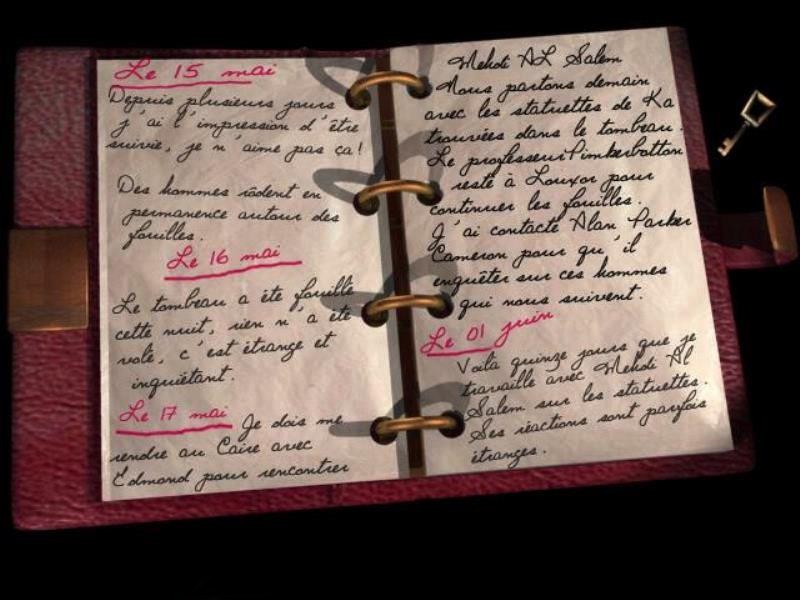 Le 15 mai
Depuis plusieurs jours
j'ai l'impression d'être
suivie, je n'aime pas ça!
Des hommes rôdent en
permanence autour des
fouilles.
Le 16 mai
Le tombeau a été fouillé
cette nuit, rien n'a été
volé, c'est étrange et
inquiétant.
Le 17 mai Je dois me
rendre au Caire avec
Edmond pour rencontrer
Mehdi AL Salem
Nous partons demain
avec les statuettes de Ka
trouvées dans le tombeau.
Le professeur Pimberbotton
reste à Louxor pour
continuer les fouilles.
J'ai contacté Alan Parker
Cameron pour qu'il
enquêter sur ces hommes
qui nous suivent.
Le 01 juin
Voilà quinze jours que je
travaille avec Mehdi Al
Salem sur les statuettes.
Ses réactions sont parfois
étranges.